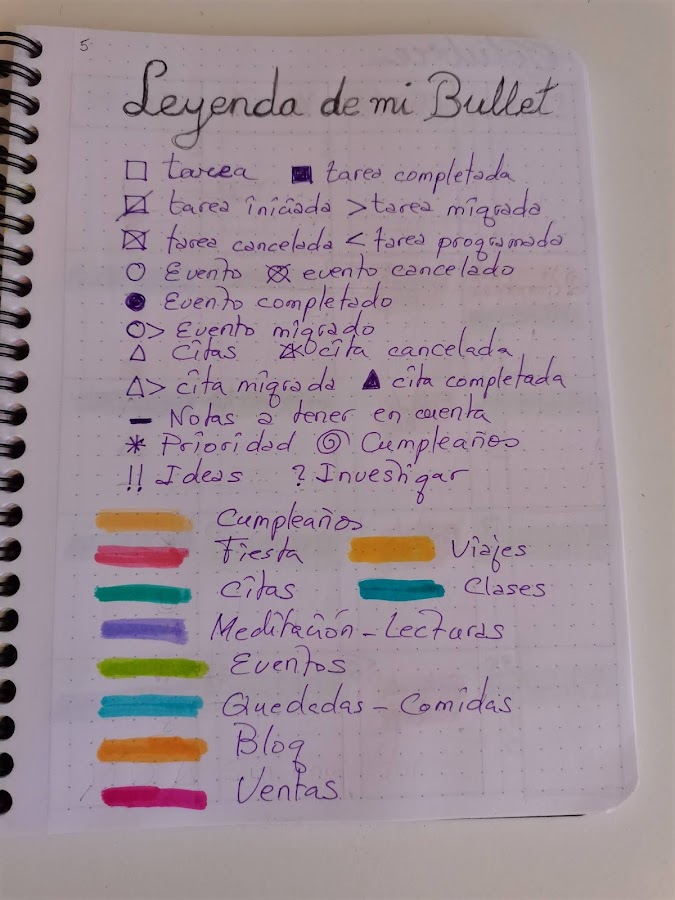 5
Leyenda de mi Bullet
□ tarea ■ tarea completada
tarea iniciada > tarea migrada
☒ tarea cancelada < tarea programada
○ Evento ⊗ evento cancelado
● Evento completado
○> Evento migrado
△ Citas cita cancelada
△> cita migrada ▲ cita completada
– Notas a tener en cuenta
* Prioridad Cumpleaños
!! Ideas ? Investigar
Cumpleaños
Fiesta Viajes
Citas Clases
Meditación - Lecturas
Eventos
Quedadas - Comidas
Blog
Ventas